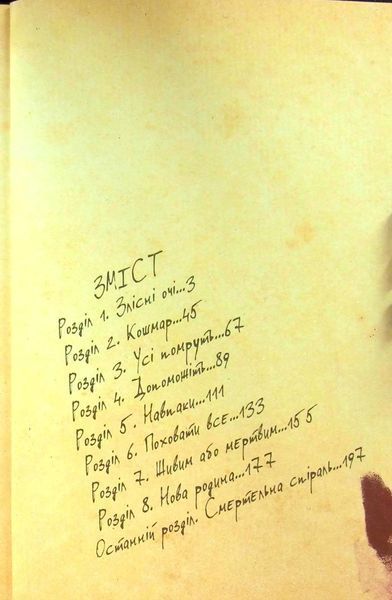 ЗМІСТ
Розділ 1. Злісні очі...3
Розділ 2. Кошмар...45
Розділ 3. Усі помруть...67
Розділ 4. Допоможіть...89
Розділ 5. Навпаки...111
Розділ 6. Поховати все...133
Розділ 7. Живим або мертвим...155
Розділ 8. Нова родина...177
Останній розділ. Смертельна спіраль...197